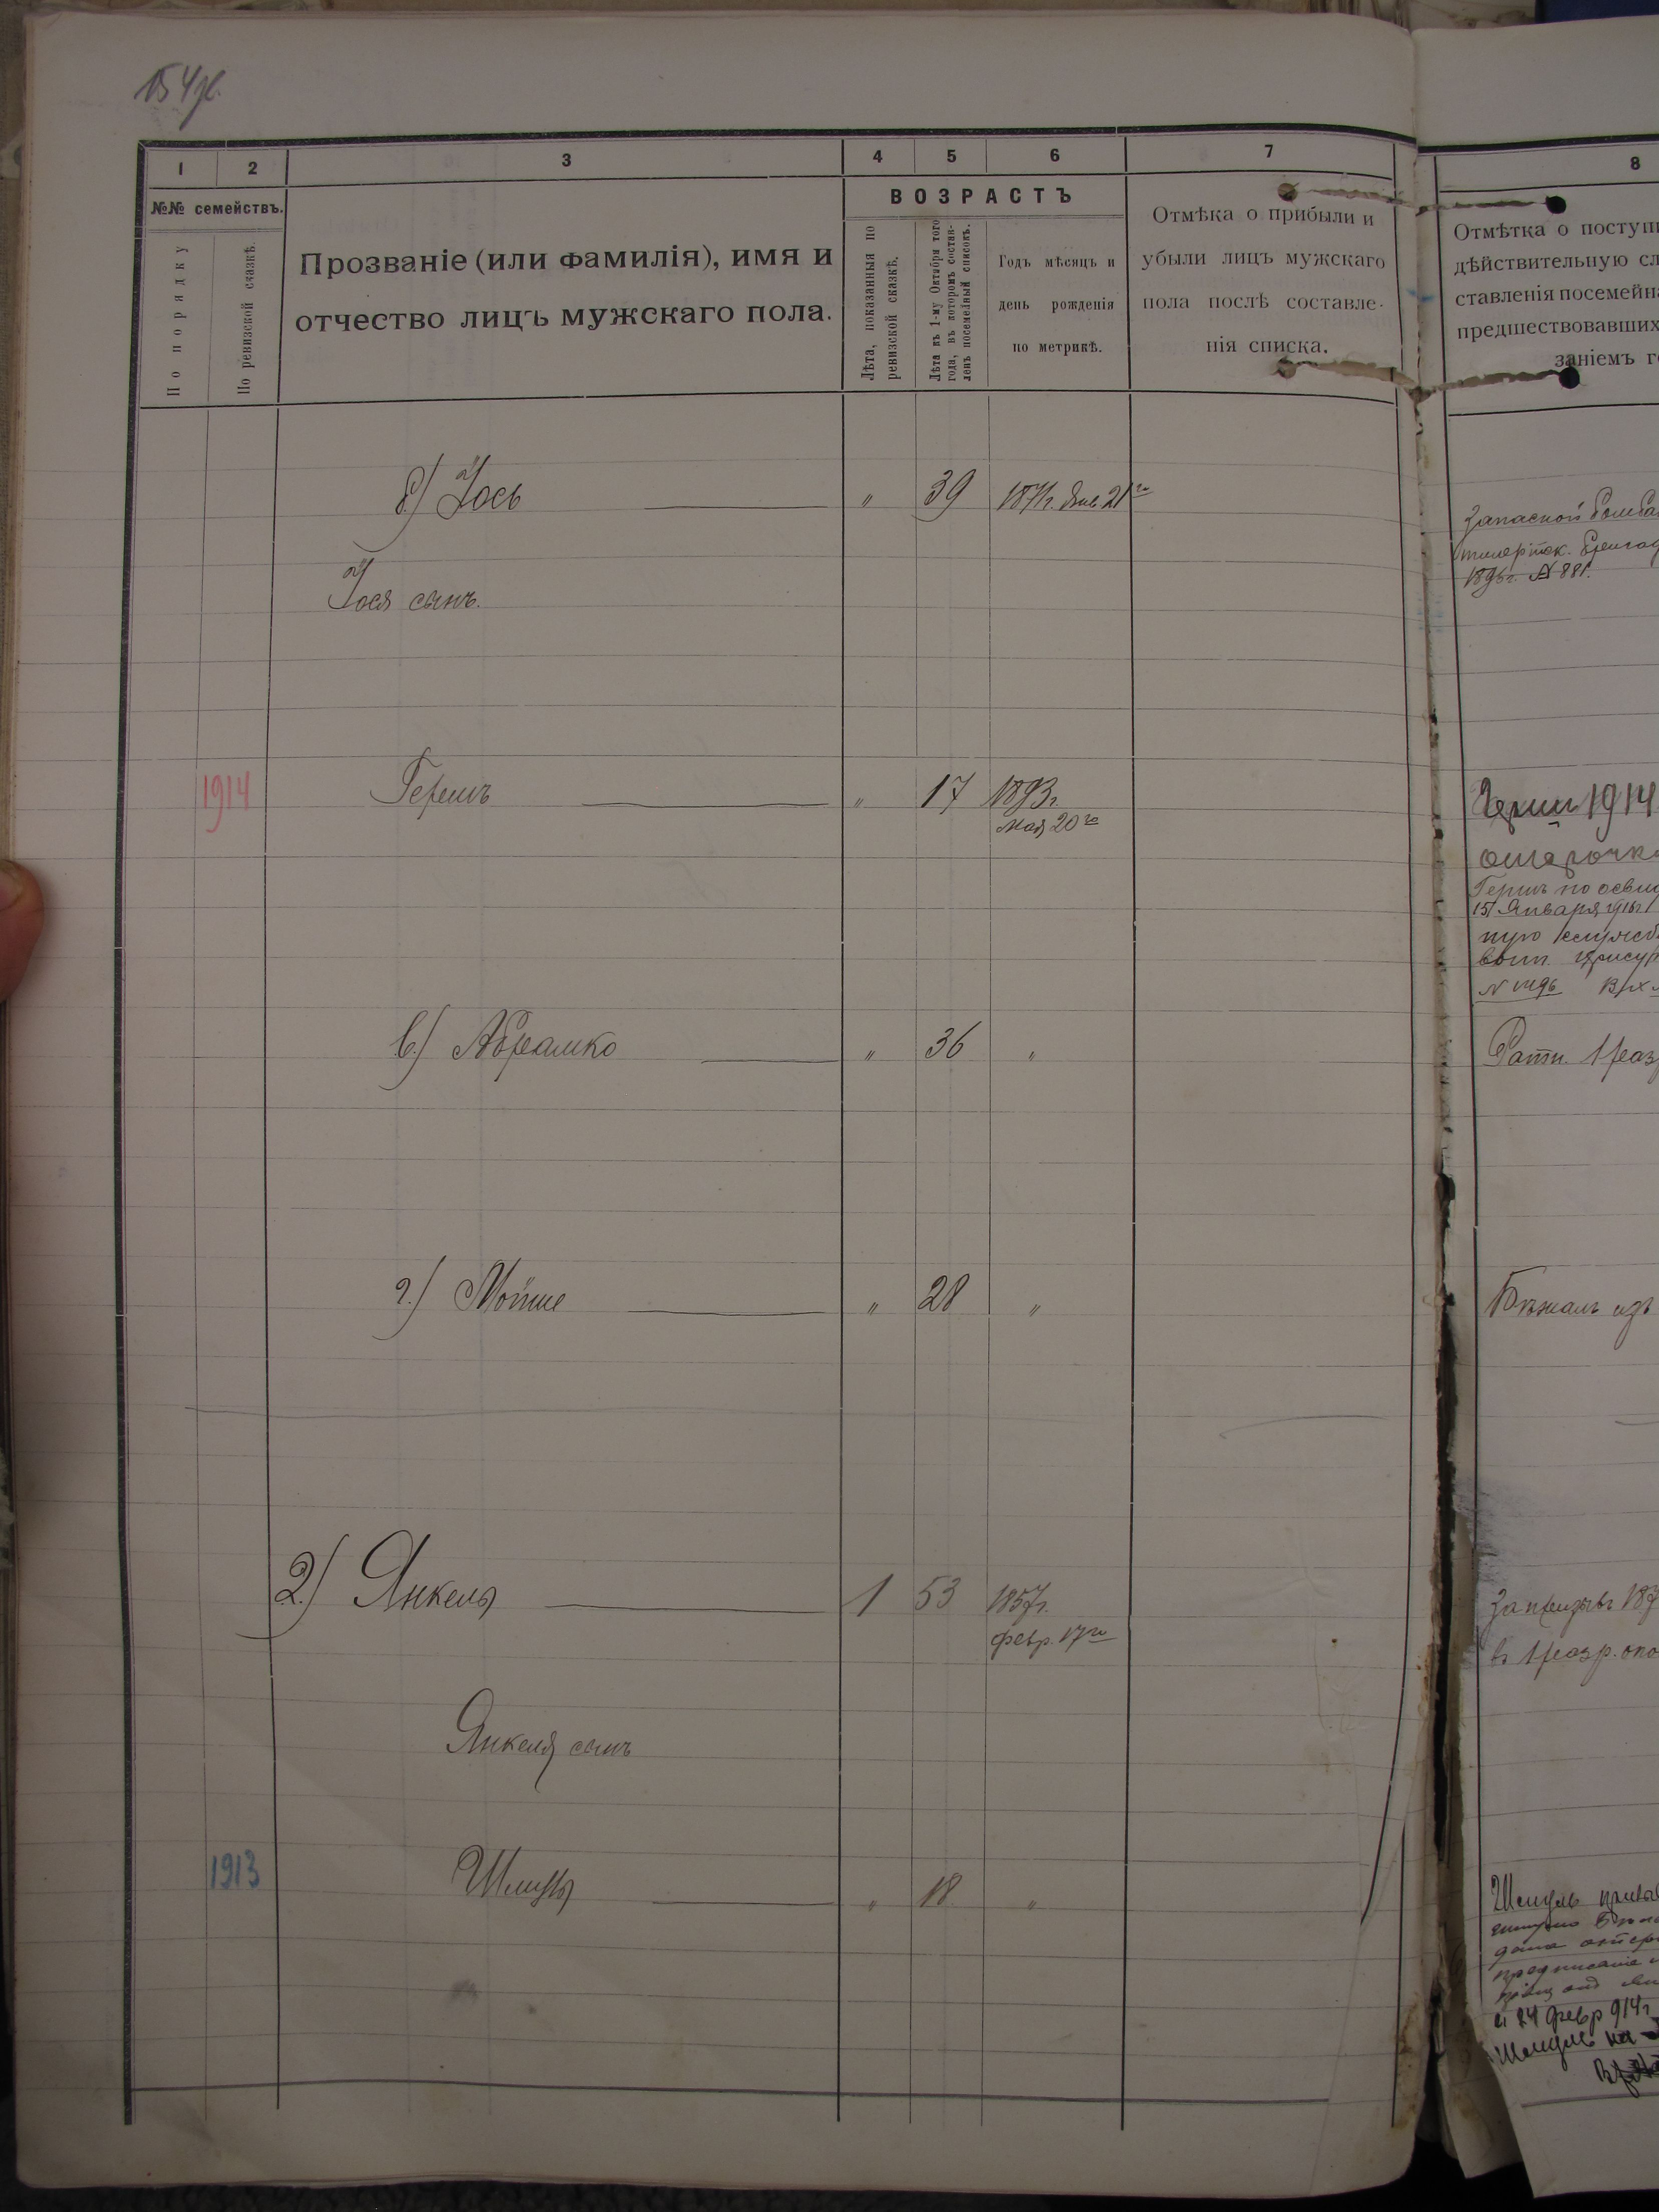 154
1 2 3 4 5 6 7 8
№№ семействъ.
По порядку
По ревизской сказкѣ.
Прозваніе (или фамилія), имя и
отчество лицъ мужскаго пола.
ВОЗРАСТЪ
Лѣта, показанныя по
ревизской сказкѣ.
Лѣта къ 1-му Октября того
года, въ которомъ состав-
ленъ посемейный списокъ.
Годъ мѣсяцъ и
день рожденія
по метрикѣ.
Отмѣка о прибыли и
убыли лицъ мужскаго
пола послѣ составле-
нія списка.
Отмѣтка о поступ
дѣйствительную сл
ставленія посемейн
предшествовавших
заніемъ г
б.) Іось " 39 1871г. Янв. 21го
Запасной бомба
1895г. № 881.
Іося сынъ.
1914 Гершъ " 17 1893г.
мая 20го
1914
отсрочк
Гершъ по освид
15 Января 1915г
ную служб
воин. присут
в.) Абрамко " 36 "
Ратн. 1 разр
г.) Мойше " 28 "
Бѣжалъ изъ
2.) Янкель 1 53 1857г.
февр. 17го
За призывъ 187
въ 1 разр. опо
Янкеля сынъ
1913 Шмуль " 18 "
Шмуль призы
предписаніе
и 24 февр 914г
Шмуль на